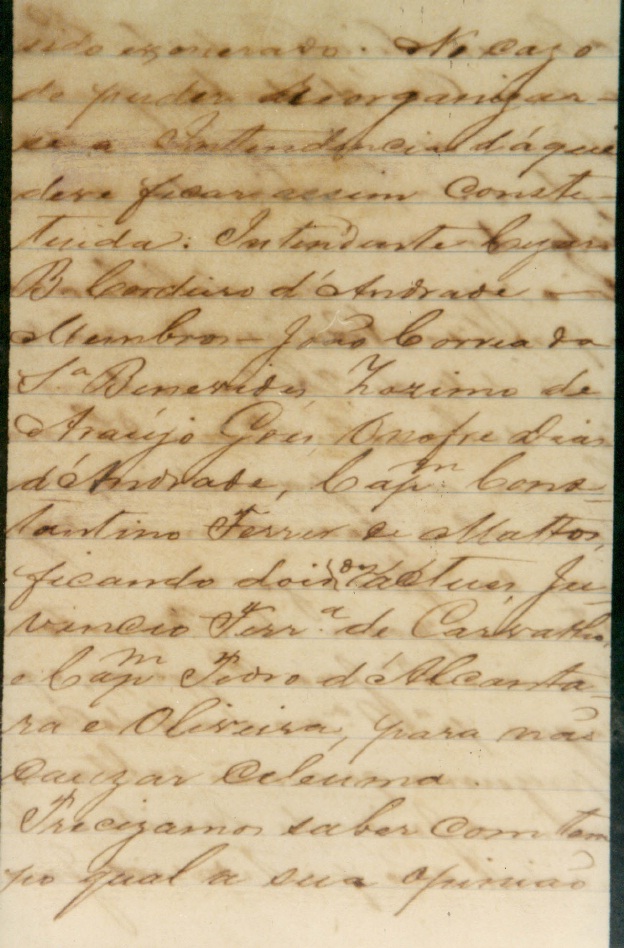 sido exonerado. No cazo
de puder desorganizar-
se a Intendencia d'áqui
deve ficar assim Consti-
tuida: Intendente Cezar
B. Cordeiro d'Andrade —
Membros – João Correia da
S.ª Benevides, Zozimo de
Araújo Góes, Onofre Dias
d'Andrade, Cap.m Cons-
tantino Ferrer e Mattos,
ficando dois dos actues, Ju-
vencio Ferr.ª de Carvalho,
e Cap.m Pedro d'Alcanta-
ra e Oliveira, para não
cauzar celeuma.
Precizamos saber com tem
po qual a sua opinião